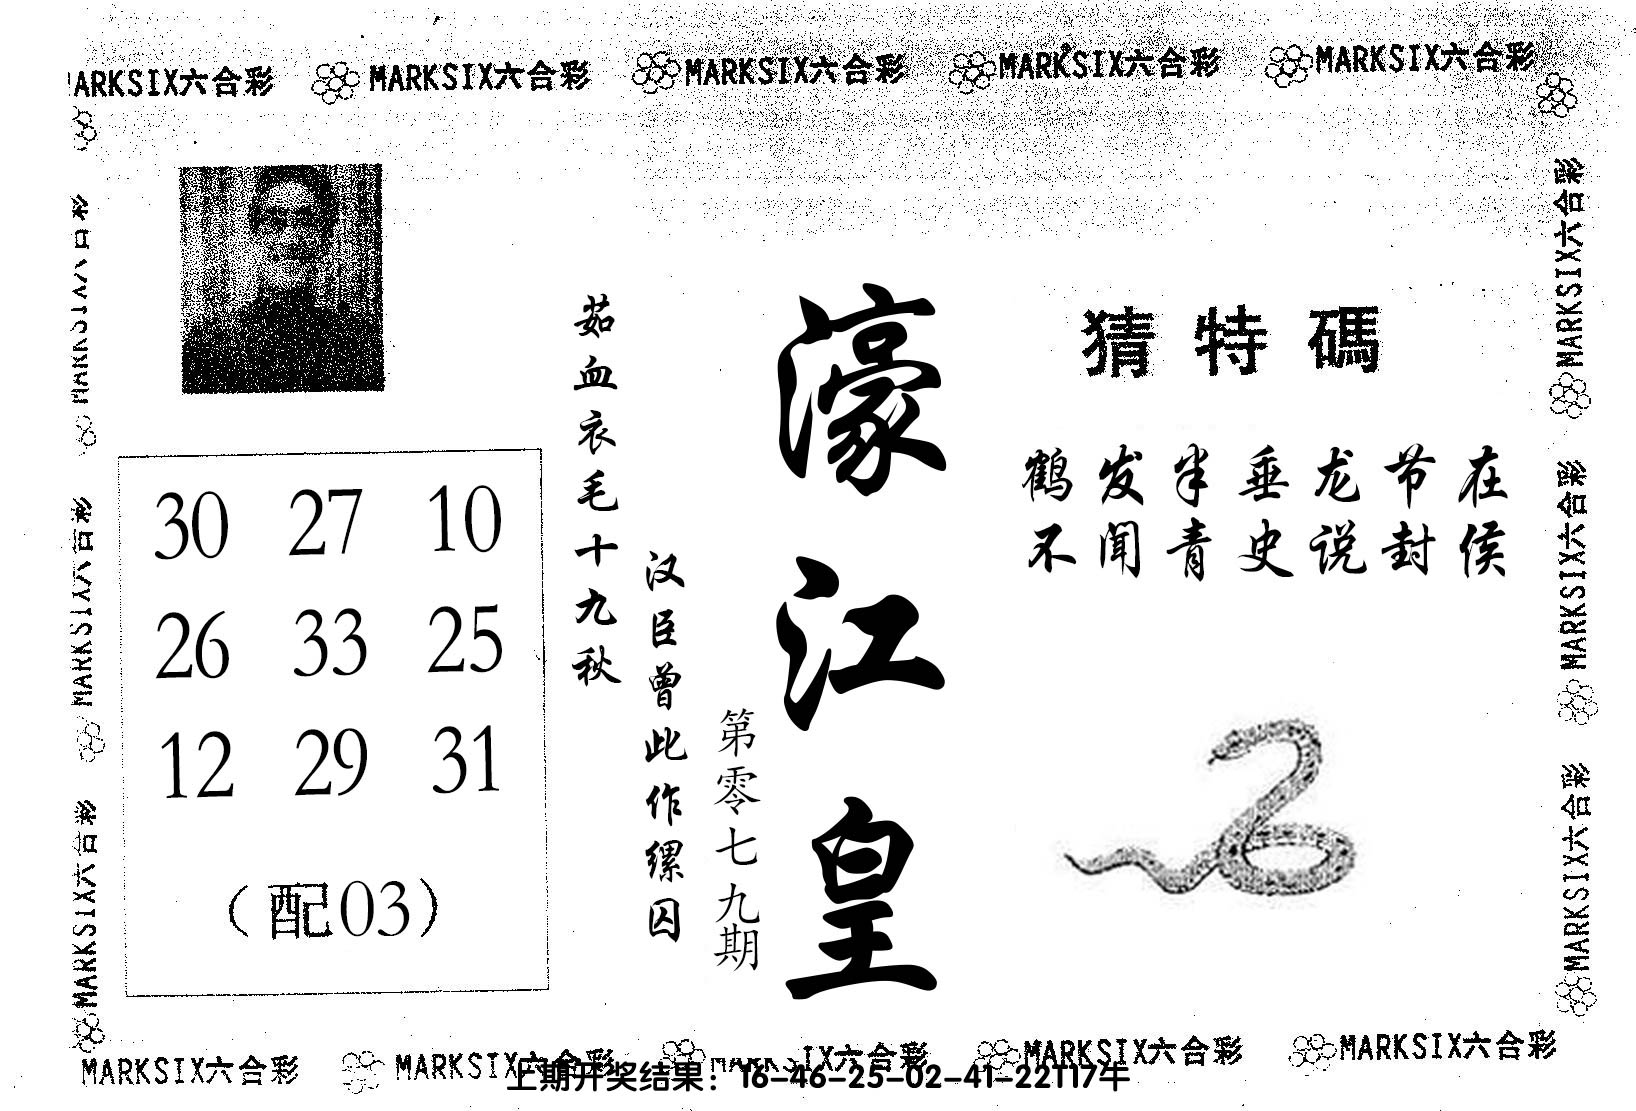 MARKSIX六合彩 MARKSIX六合彩 MARKSIX六合彩 MARKSIX六合彩 MARKSIX六合彩
猜特碼
鹤发半垂龙节在
不闻青史说封侯
濠江皇
第零七九期
茹血衣毛十九秋
汉臣曾此作缧囚
30 27 10
26 33 25
12 29 31
（配03）
MARKSIX六合彩
MARKSIX六合彩
MARKSIX六合彩
MARKSIX六合彩
MARKSIX六合彩
MARKSIX六合彩
MARKSIX六合彩 MARKSIX六合彩 MARKSIX六合彩 MARKSIX六合彩 MARKSIX六合彩
上期开奖结果：16-46-25-02-41-22T17午